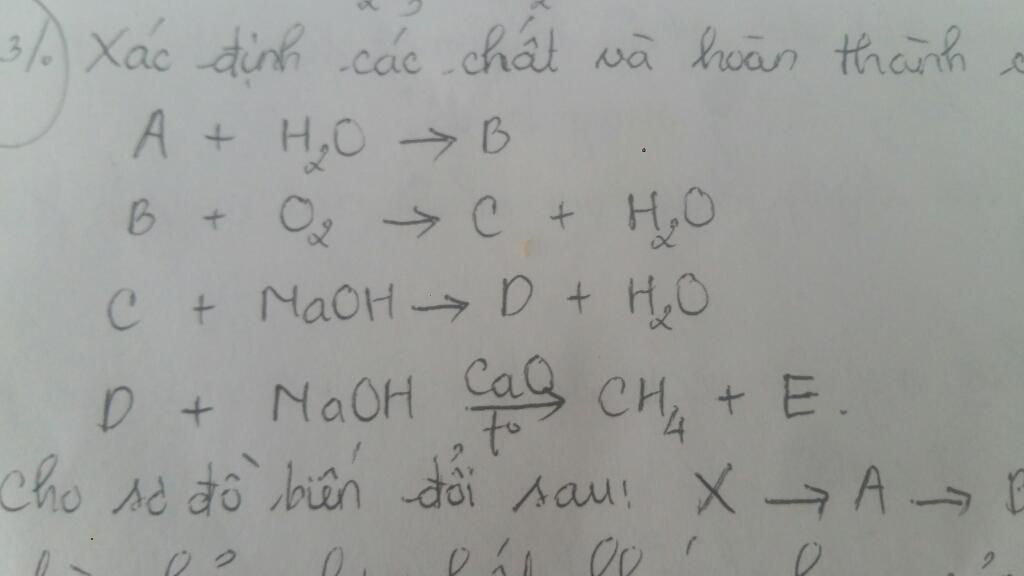 3/. Xác định các chất và hoàn thành
A + H₂O → B
B + O₂ → C + H₂O
C + NaOH → D + H₂O
D + NaOH CaO/t° → CH₄ + E.
Cho sơ đồ biến đổi sau: X → A → B